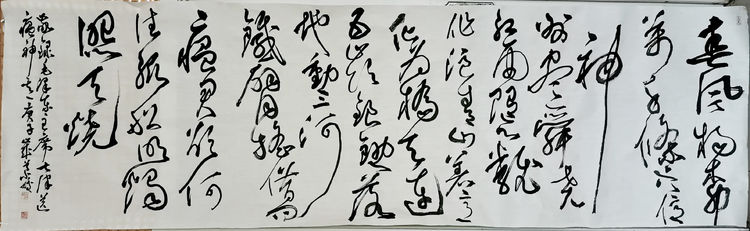 春风杨柳
万千条六亿
神
州尽舜尧
红雨随心翻
作浪青山着意
化为桥天连
五岭银锄落
地动三河
铁臂摇借问
瘟君欲何
往纸船明烛
照天烧
录毛泽东主席七律送
瘟神 庚子